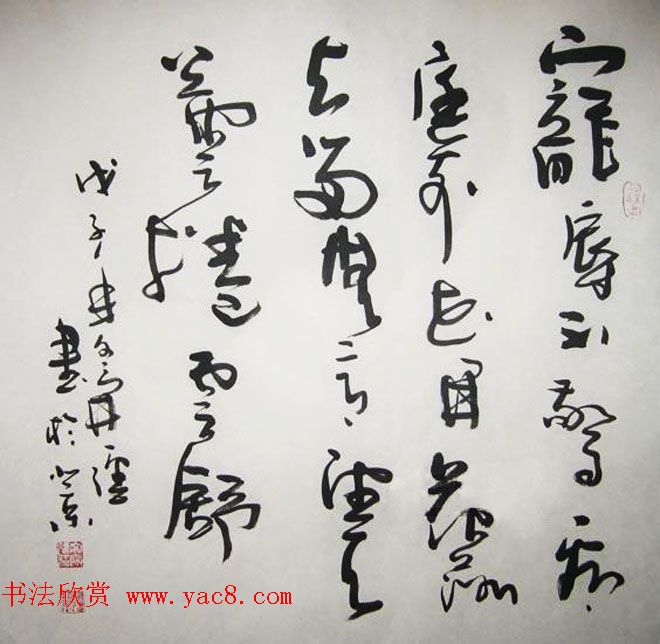 寵辱不驚看
庭前花開花落
去留無意望天
上雲捲雲舒
戊子年
書於北京
书法欣赏 www.yac8.com